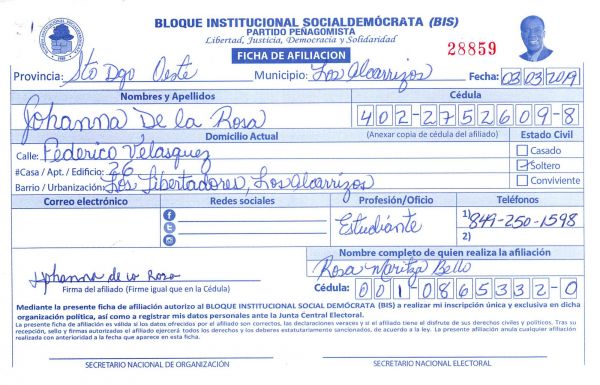 BLOQUE INSTITUCIONAL SOCIALDEMÓCRATA (BIS)
PARTIDO PEÑAGOMISTA
Libertad, Justicia, Democracia y Solidaridad
FICHA DE AFILIACION
28859
Provincia: Sto Dgo Oeste Municipio: Los Alcarrizos Fecha: 03/03/2019
Nombres y Apellidos Cédula
Johanna De la Rosa 402-2752609-8
Domicilio Actual (Anexar copia de cédula del afiliado) Estado Civil
Calle: Federico Velasquez Casado
#Casa / Apt. / Edificio: 26 Soltero
Barrio / Urbanización: Los Libertadores, Los Alcarrizos Conviviente
Correo electrónico Redes sociales Profesión/Oficio Teléfonos
Estudiante 1) 849-250-1598
2)
Nombre completo de quien realiza la afiliación
Johanna de la Rosa Rosa Maritza Bello
Firma del afiliado (Firme igual que en la Cédula) Cédula: 001-0865332-0
Mediante la presente ficha de afiliación autorizo al BLOQUE INSTITUCIONAL SOCIAL DEMÓCRATA (BIS) a realizar mi inscripción única y exclusiva en dicha
organización política, así como a registrar mis datos personales ante la Junta Central Electoral.
La presente ficha de afiliación es válida si los datos ofrecidos por el afiliado son correctos, las declaraciones veraces y si el afiliado tiene el disfrute de sus derechos civiles y políticos. Tras su
recepción, sello y firmas autorizadas el afiliado ejercerá todos los derechos y los deberes estatutariamente sancionados, de acuerdo a la ley. La presente afiliación anula cualquier afiliación
realizada con anterioridad a la fecha que aparece en esta ficha.
SECRETARIO NACIONAL DE ORGANIZACIÓN SECRETARIO NACIONAL ELECTORAL